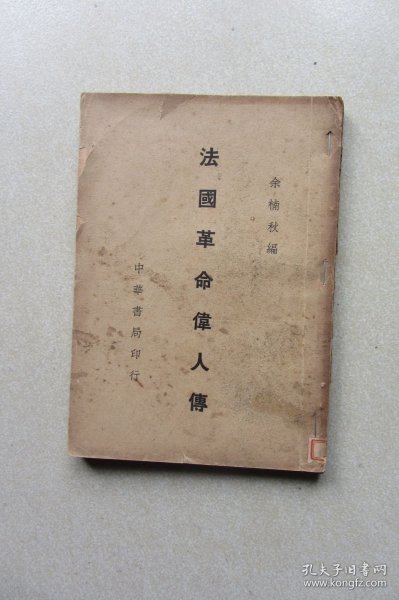 余楠秋編
法國革命偉人傳
中華書局印行
孔夫子旧书网
www.kongfz.com